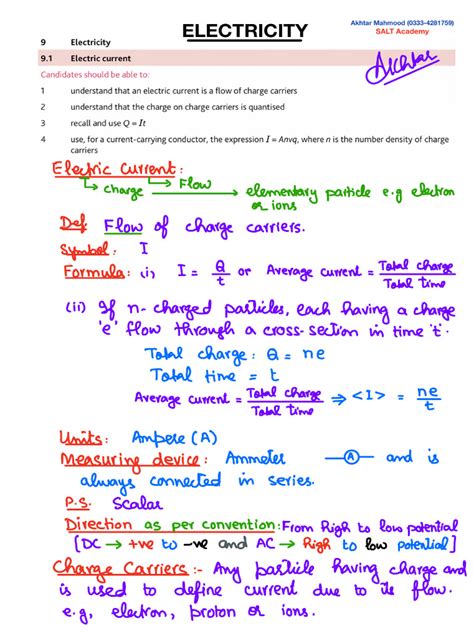 ELECTRICITY
Akhtar Mahmood (0333-4281759)
SALT Academy
9 Electricity
9.1 Electric current
Akhtar
Candidates should be able to:
1 understand that an electric current is a flow of charge carriers
2 understand that the charge on charge carriers is quantised
3 recall and use Q = It
4 use, for a current-carrying conductor, the expression I = Anvq, where n is the number density of charge
carriers
Electric Current :
charge Flow elementary particle e.g electron
or ions
Def Flow of charge carriers.
Symbol : I
Formula : (i) I = Q/t or Average current = Total charge/Total time
(ii) If n-charged particles, each having a charge
'e' flow through a cross-section in time 't'.
Total charge : Q = ne
Total time = t
Average current = Total charge/Total time → <I> = ne/t
Units : Ampere (A)
Measuring device : Ammeter —A— and is
always connected in series.
P.S. Scalar
Direction as per convention : From High to low potential
[DC → +ve to -ve and AC → High to low potential]
Charge Carriers :- Any particle having charge and
is used to define current due to its flow.
e.g, electron, proton or ions.